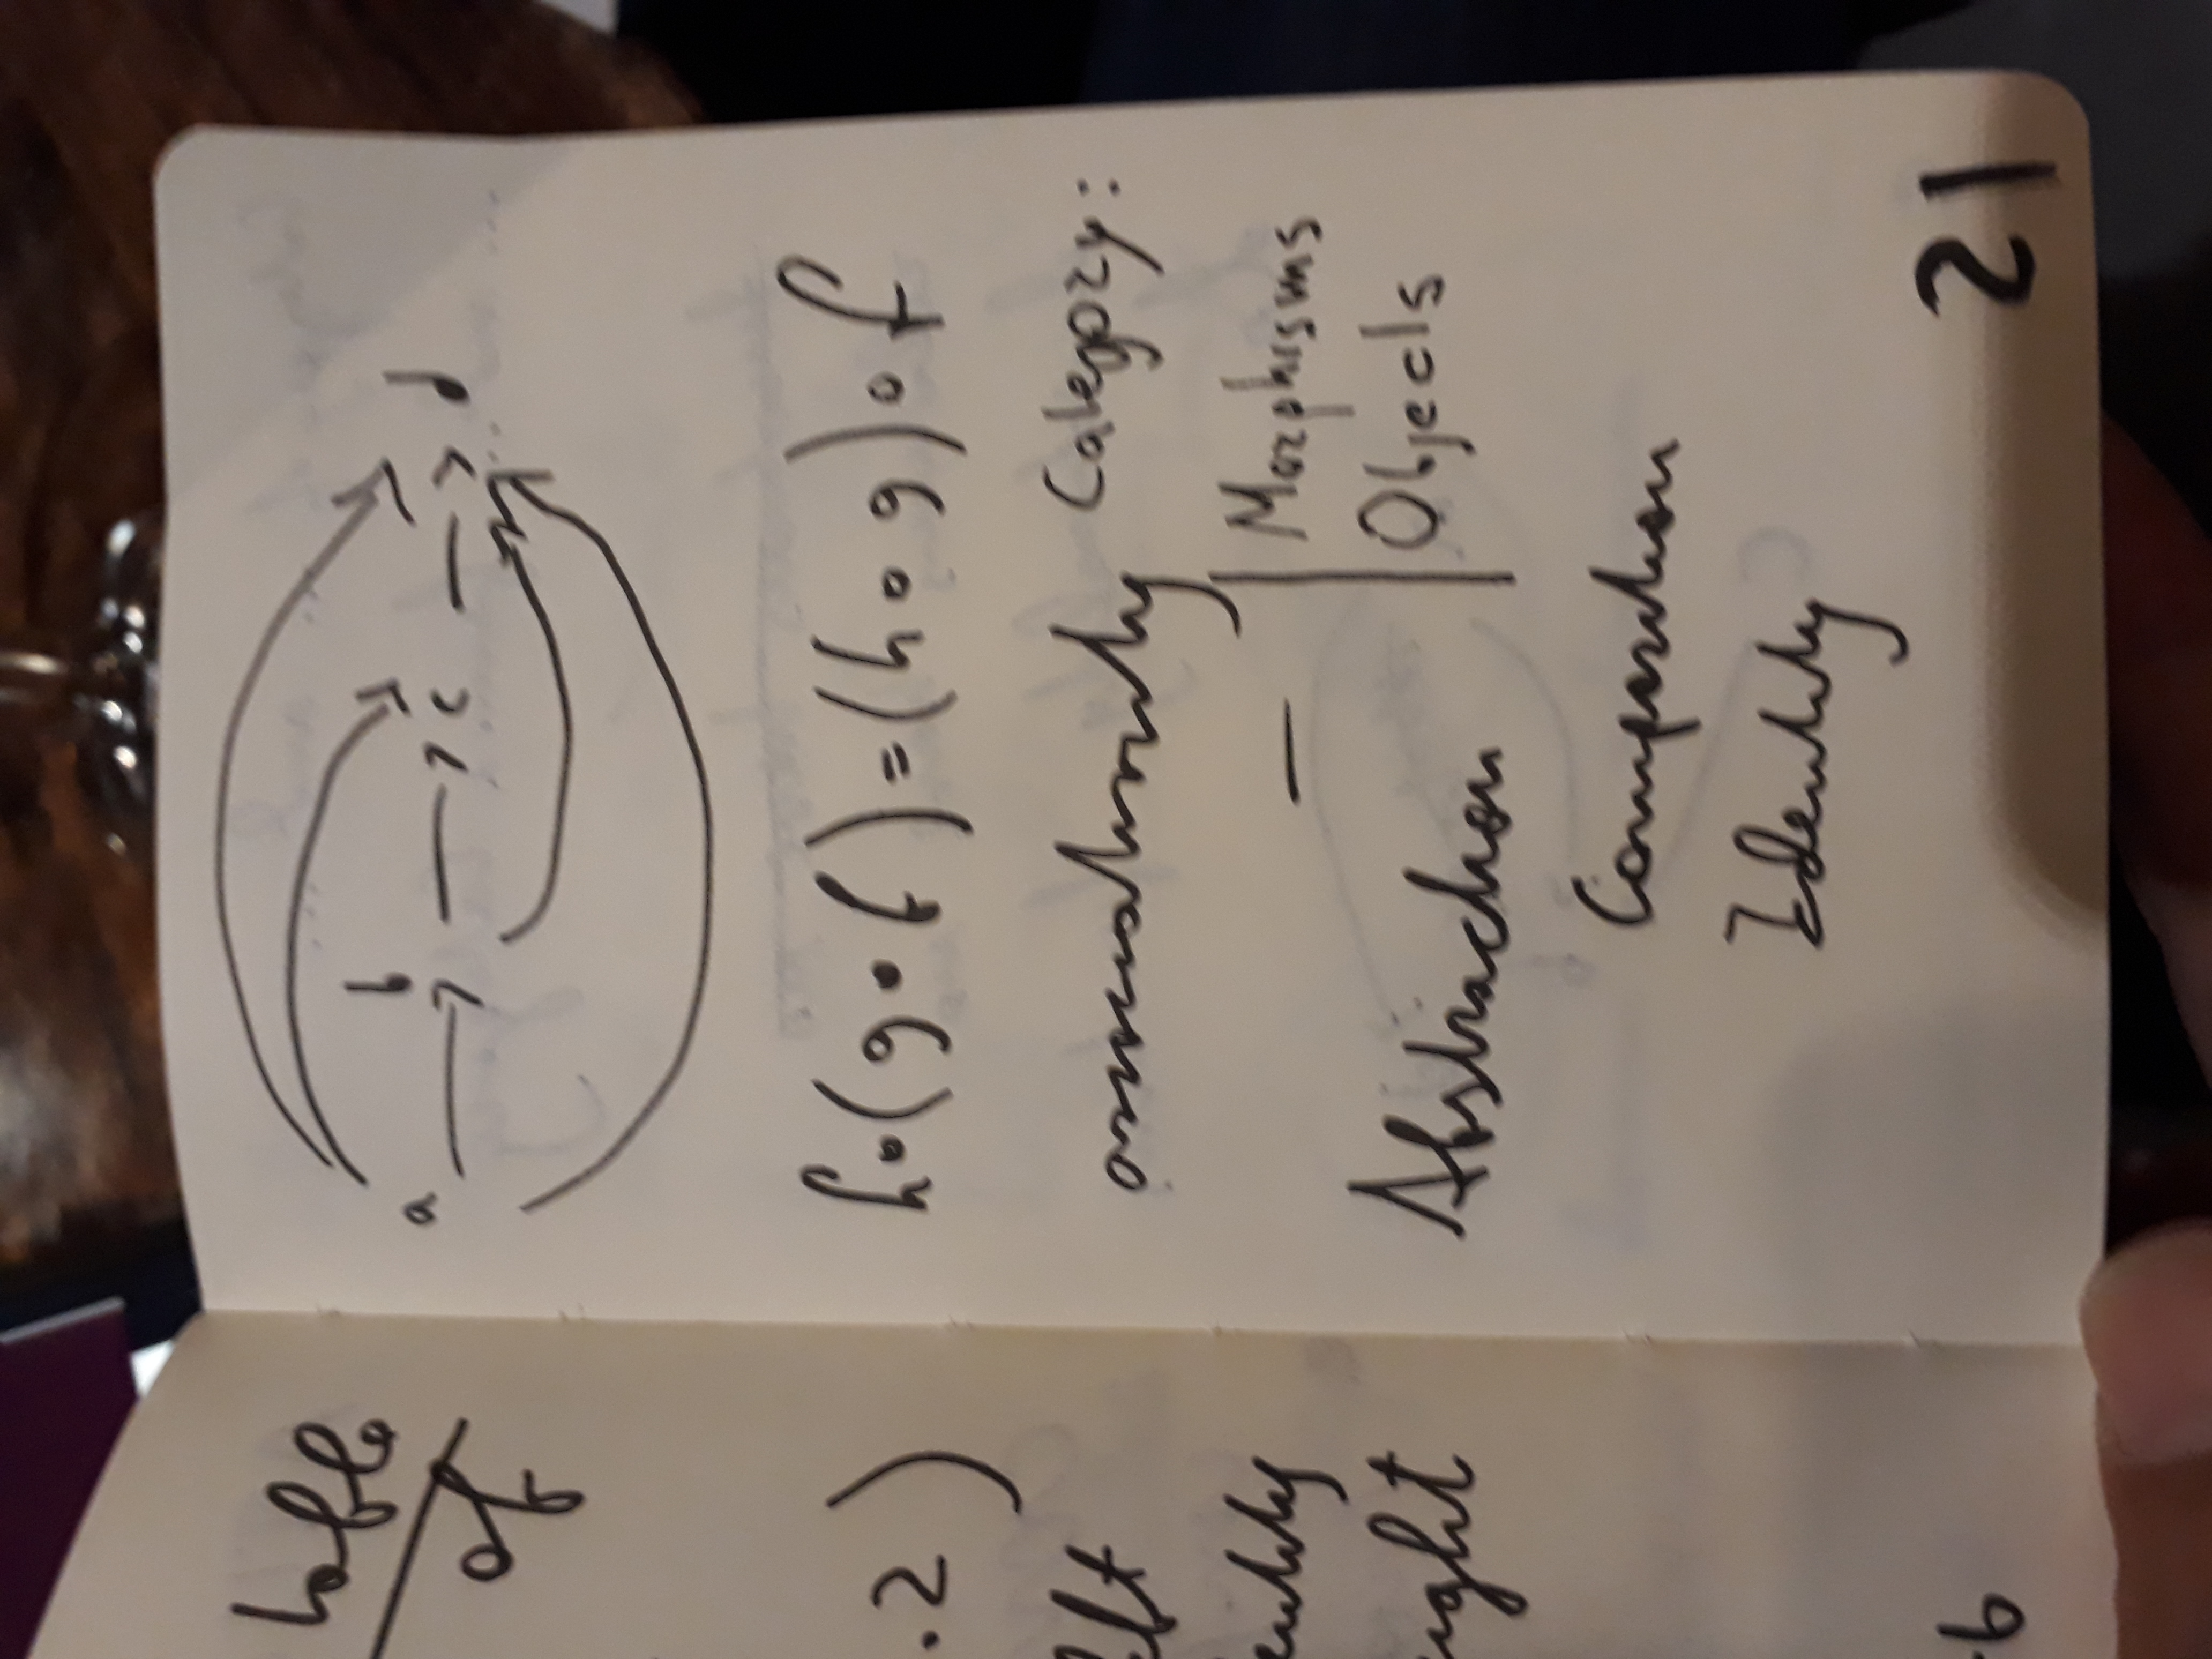 of
.2)
ght
b
a b c d
h∘(g∘f)=(h∘g)∘f
associativity
Category:
Morphisms
Objects
—
Abstraction
Composition
Identity
21